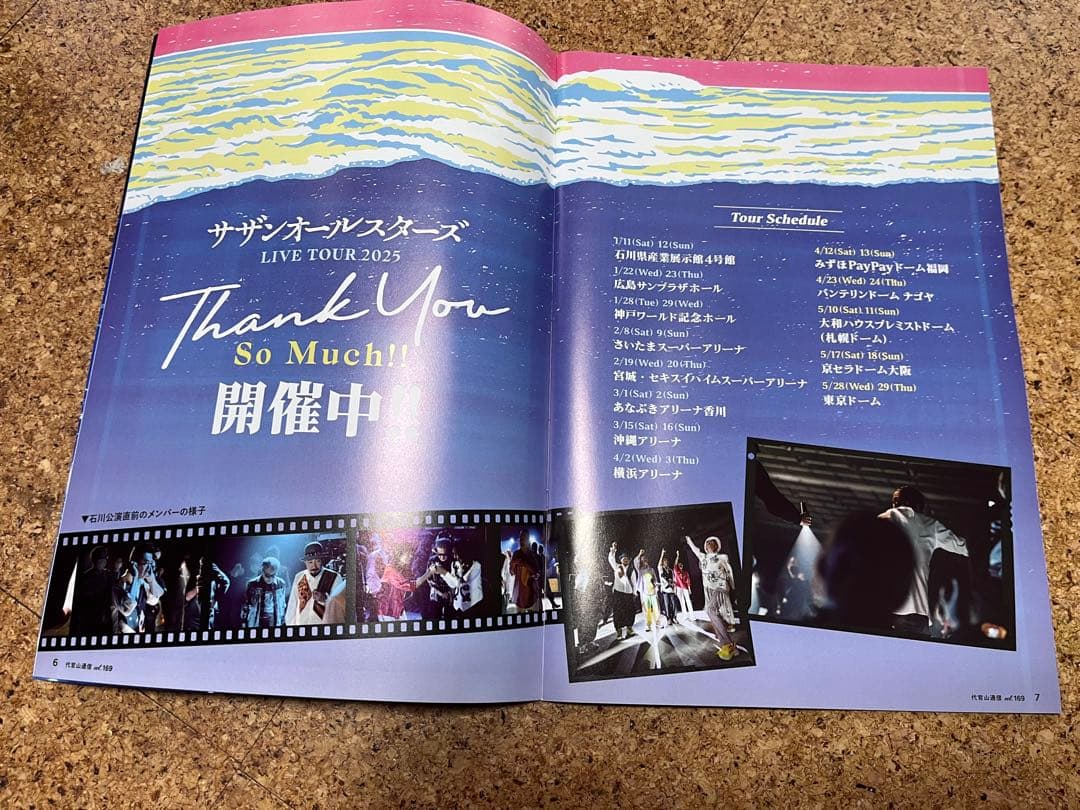 サザンオールスターズ
LIVE TOUR 2025
Thank You
So Much!!
開催中!!
▼石川公演直前のメンバーの様子
6 代官山通信 vol.169
Tour Schedule
1/11(Sat) 12(Sun)
石川県産業展示館4号館
1/22(Wed) 23(Thu)
広島サンプラザホール
1/28(Tue) 29(Wed)
神戸ワールド記念ホール
2/8(Sat) 9(Sun)
さいたまスーパーアリーナ
2/19(Wed) 20(Thu)
宮城・セキスイハイムスーパーアリーナ
3/1(Sat) 2(Sun)
あなぶきアリーナ香川
3/15(Sat) 16(Sun)
沖縄アリーナ
4/2(Wed) 3(Thu)
横浜アリーナ
4/12(Sat) 13(Sun)
みずほPayPayドーム福岡
4/23(Wed) 24(Thu)
バンテリンドーム ナゴヤ
5/10(Sat) 11(Sun)
大和ハウスプレミストドーム
(札幌ドーム)
5/17(Sat) 18(Sun)
京セラドーム大阪
5/28(Wed) 29(Thu)
東京ドーム
代官山通信 vol.169 7